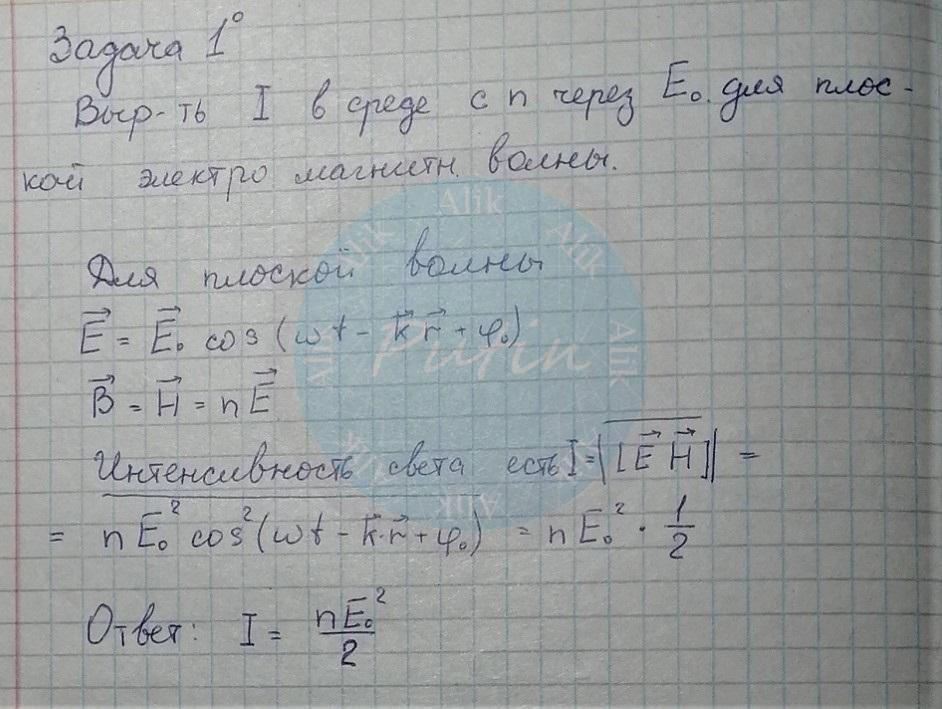 Задача 1°
Выр-ть I в среде с n через E₀ для плос-
кой электро магнитн. волны.
Для плоской волны
E⃗ = E⃗₀ cos (ωt - k⃗r⃗ + φ₀)
B⃗ = H⃗ = nE⃗
Интенсивность света есть I = |[E⃗ H⃗]| =
= nE₀² cos² (ωt - k⃗·r⃗ + φ₀) = nE₀² · 1/2
Ответ: I = nE₀²/2
Alik Alik Alik Alik Alik Alik Alik Alik
Putin